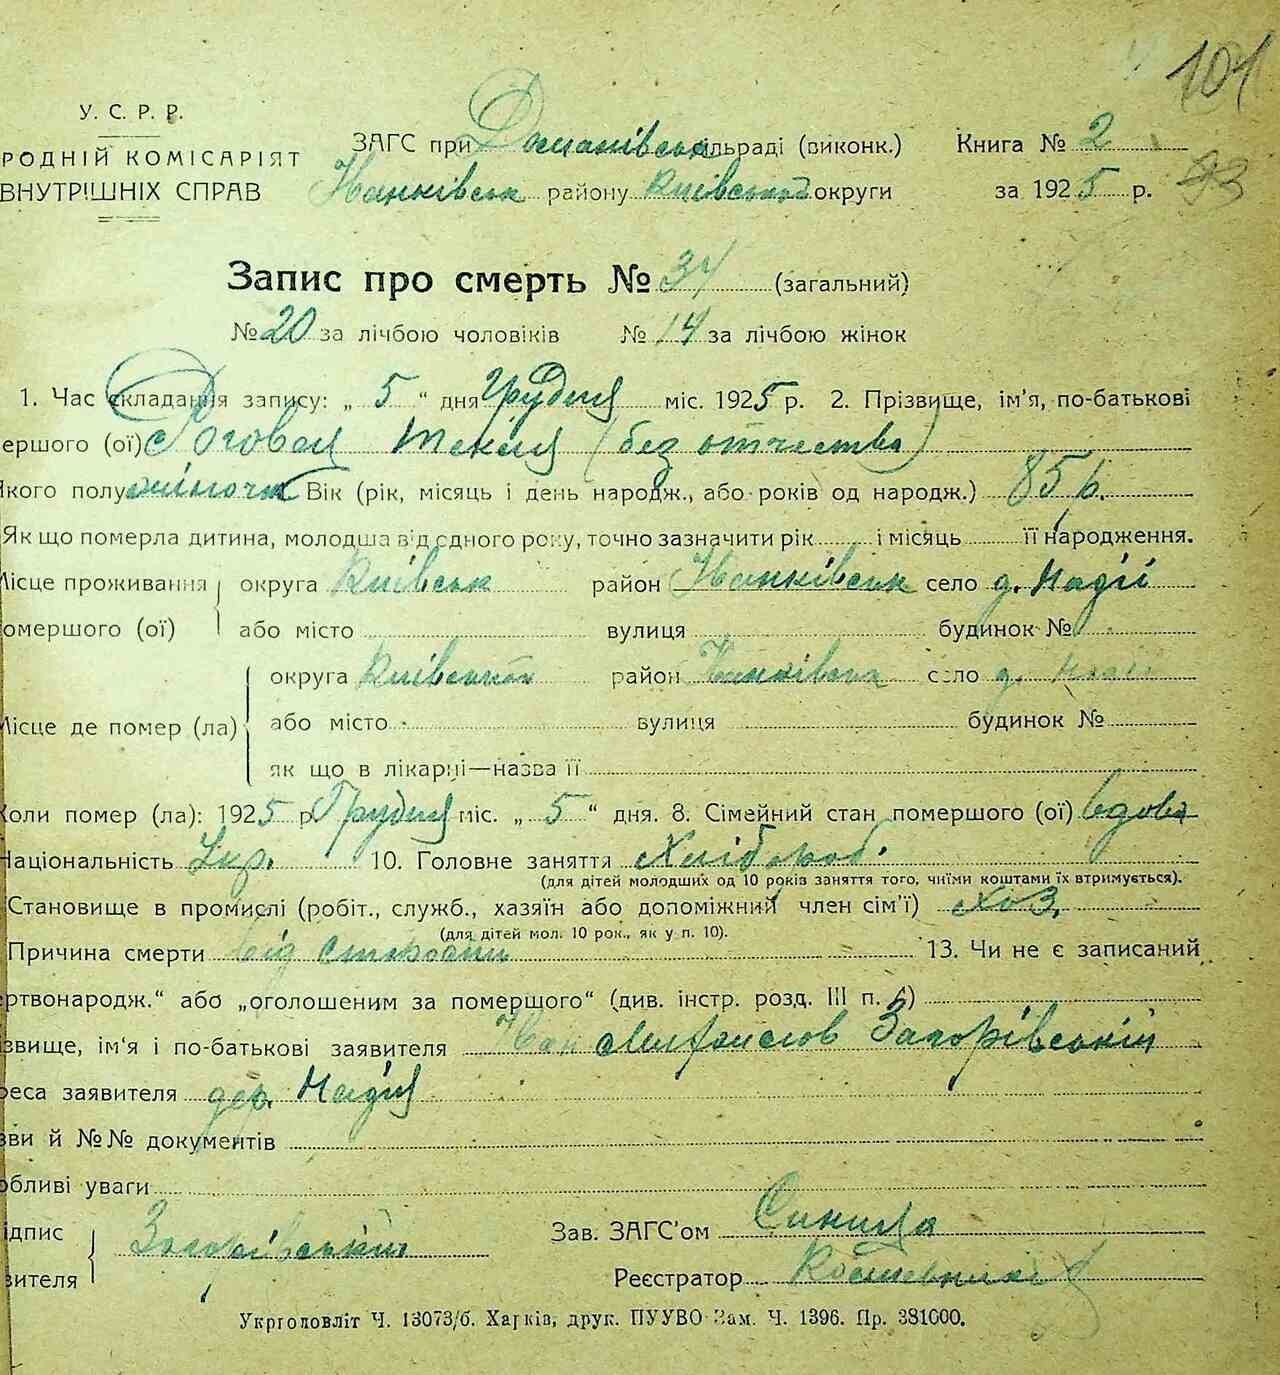 101
У. С. Р. Р.
РОДНІЙ КОМІСАРІЯТ
ВНУТРІШНІХ СПРАВ
ЗАГС при Доманівськ ільраді (виконк.) Книга № 2
Іванківськ району Київської округи за 1925 р. 93
Запис про смерть № 34 (загальний)
№ 20 за лічбою чоловіків № 14 за лічбою жінок
1. Час складання запису: „ 5 “ дня Грудня міс. 1925 р. 2. Прізвище, ім'я, по-батькові
ершого (ої) Текля (без отчества)
якого полу жіноча Вік (рік, місяць і день народж., або років од народж.) 85 р.
Як що померла дитина, молодша від одного року, точно зазначити рік і місяць її народження.
Місце проживання округа Київськ район Іванківськ село д. Надії
омершого (ої) або місто вулиця будинок №
округа Київської район Іванківськ село д.
Місце де помер (ла) або місто вулиця будинок №
як що в лікарні—назва її
Коли помер (ла): 1925 р Грудня міс. „ 5 “ дня. 8. Сімейний стан помершого (ої) вдова
Національність Укр. 10. Головне заняття Хлібороб.
(для дітей молодших од 10 років заняття того, чиїми коштами їх втримується).
Становище в промислі (робіт., служб., хазяїн або допоміжний член сім'ї) Хоз.
(для дітей мол. 10 рок., як у п. 10).
Причина смерти від старости 13. Чи не є записаний
ртвонародж.“ або „оголошеним за помершого“ (див. інстр. розд. III п. 6)
ізвище, ім'я і по-батькові заявителя Іван Загорівський
реса заявителя дер. Надія
зви й №№ документів
обливі уваги
ідпис Загорівський Зав. ЗАГС'ом Синиця
вителя Реєстратор
Укрголовліт Ч. 13073/б. Харків, друк. ПУУВО Зам. Ч. 1396. Пр. 381000.